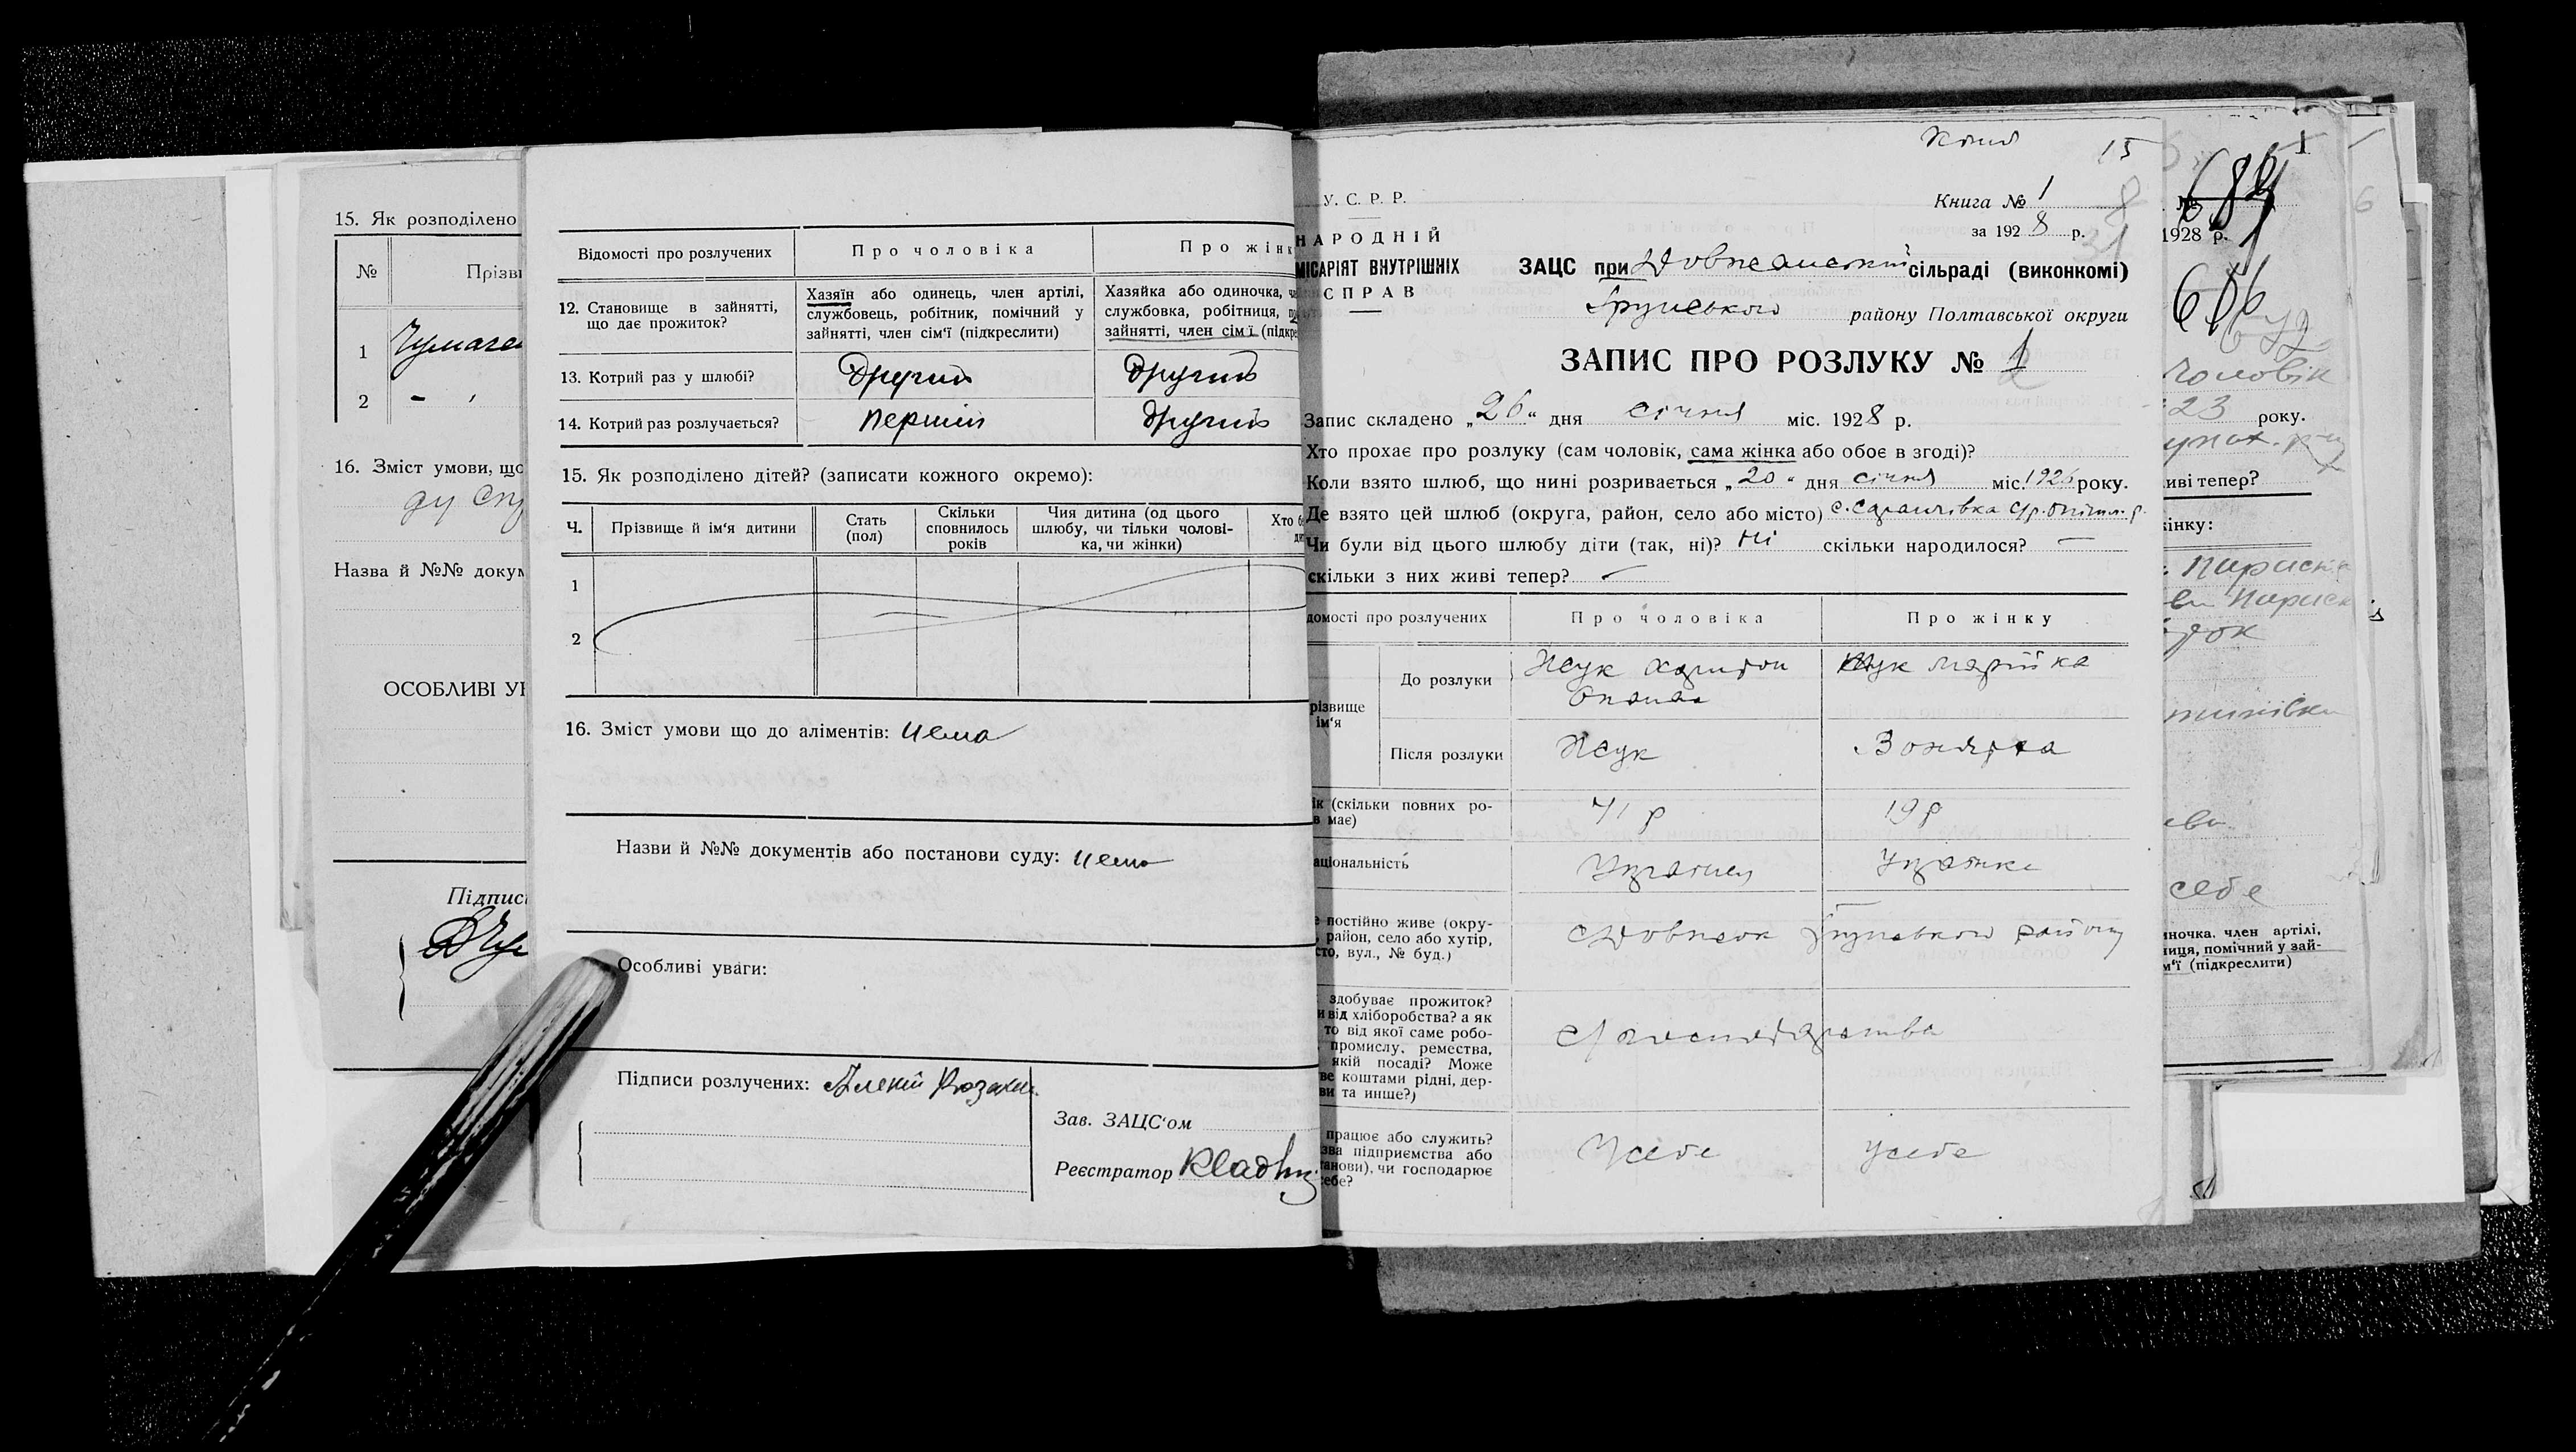 15. Як розподілено
№ Прізві
1
2
16. Зміст умови, що
Назва й №№ докум
ОСОБЛИВІ УІ
Підпис
Відомості про розлучених
Про чоловіка
Про жінк
12. Становище в зайнятті,
що дає прожиток?
Хазяїн або одинець, член артілі,
службовець, робітник, помічний у
зайнятті, член сім'ї (підкреслити)
Хазяйка або одиночка,
службовка, робітниця,
зайнятті, член сім'ї (підкре
13. Котрий раз у шлюбі?
Другий
Другий
14. Котрий раз розлучається?
перший
другий
15. Як розподілено дітей? (записати кожного окремо):
Ч.
Прізвище й ім'я дитини
Стать
(пол)
Скільки
сповнилось
років
Чия дитина (од цього
шлюбу, чи тільки чолові-
ка, чи жінки)
Хто
1
2
16. Зміст умови що до аліментів: нема
Назви й №№ документів або постанови суду: нема
Особливі уваги:
Підписи розлучених:
Зав. ЗАЦС'ом
Реєстратор
Копія
15
У. С. Р. Р.
НАРОДНІЙ
МІСАРІЯТ ВНУТРІШНІХ
СПРАВ
Книга № 1
за 1928 р.
ЗАЦС при Довжанській сільраді (виконкомі)
Грунського району Полтавської округи
ЗАПИС ПРО РОЗЛУКУ № 1
Запис складено „26" дня січня міс. 1928 р.
Хто прохає про розлуку (сам чоловік, сама жінка або обоє в згоді)?
Коли взято шлюб, що нині розривається „20" дня січня міс. 1926 року.
Де взято цей шлюб (округа, район, село або місто)
Чи були від цього шлюбу діти (так, ні)? ні скільки народилося? —
скільки з них живі тепер? —
домості про розлучених
Про чоловіка
Про жінку
різвище
ім'я
До розлуки
Жук Харитон
Жук Марійка
Після розлуки
Жук
ік (скільки повних ро-
в має)
41 р
19 р
аціональність
Українец
Українка
е постійно живе (окру-
район, село або хутір,
сто, вул., № буд.)
с Довжок Грунського району
здобуває прожиток?
и від хліборобства? а як
то від якої саме робо-
промислу, ремества,
якій посаді? Може
ве коштами рідні, дер-
ви та инше?)
с/господарства
працює або служить?
зва підприємства або
танови), чи господарює
себе?
У себе
у себе
1928 р.
чоловік
23 року.
иві тепер?
інку:
себе
иночка, член артілі,
ниця, помічний у зай-
м'ї (підкреслити)